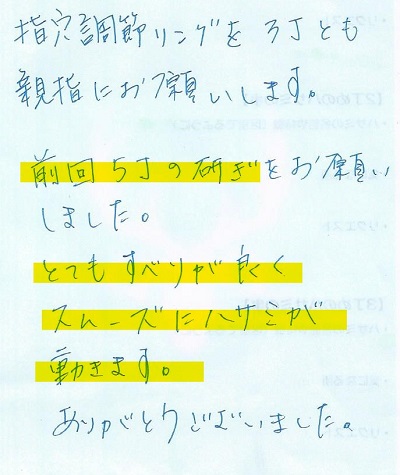 指穴調節リングを3丁とも
親指にお願いします。
前回5丁の研ぎをお願い
しました。
とてもすべりが良く
スムーズにハサミが
動きます。
ありがとうございました。